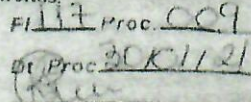 Fl 117 Proc. 009
Dt Proc 30/01/21